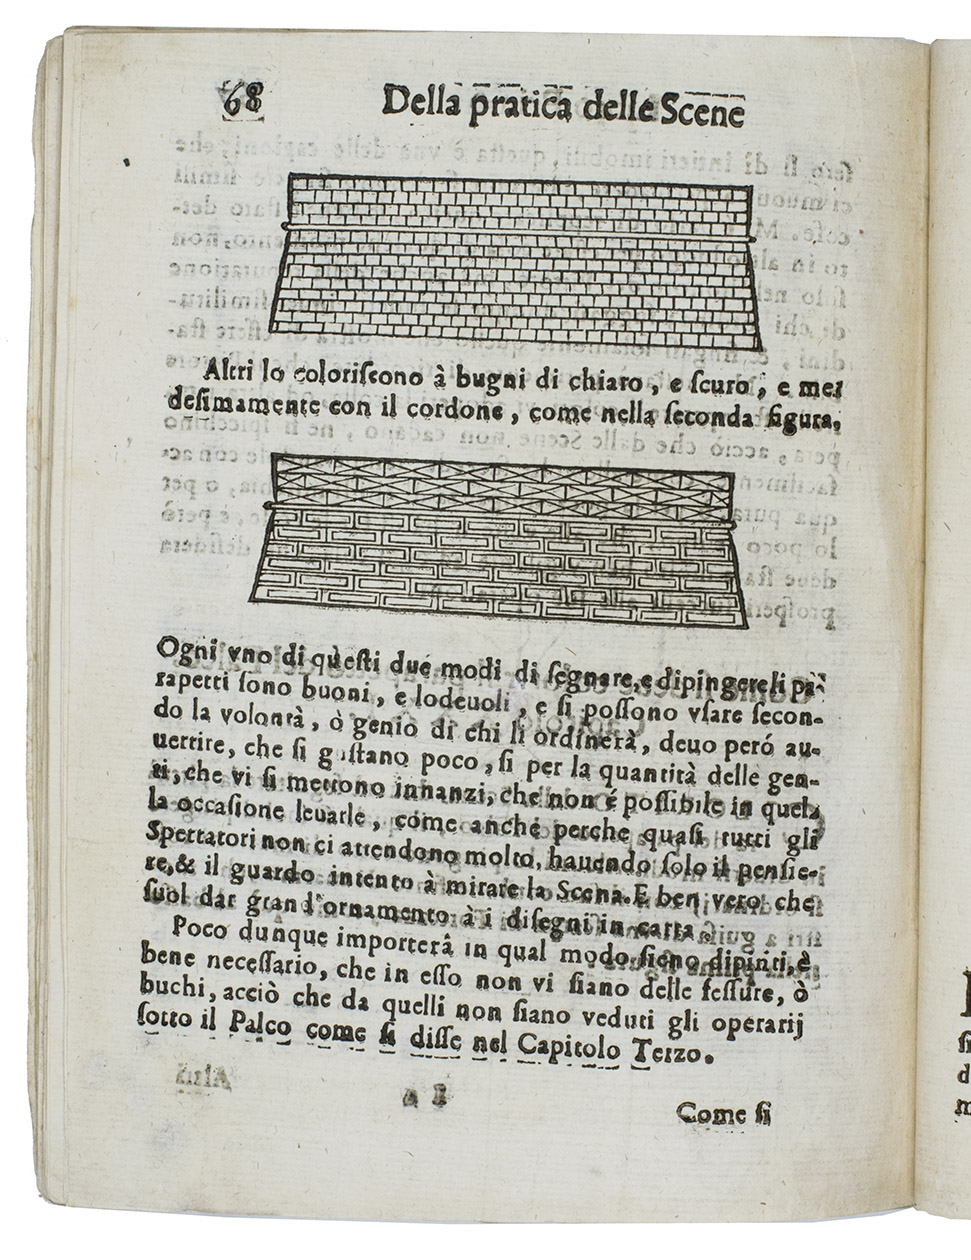 68
Della pratica delle Scene
Altri lo coloriſcono à bugni di chiaro, e ſcuro, e me-
deſimamente con il cordone, come nella ſeconda figura.
Ogni vno di queſti due modi di ſegnare, e dipingere li pa-
rapetti ſono buoni, e lodeuoli, e ſi poſſono vſare ſecon-
do la volontà, ò genio di chi li ordinerà, deuo peró au-
uertire, che ſi guſtano poco, ſi per la quantità delle gen-
ti, che vi ſi mettono innanzi, che non é poſſibile in quel-
la occaſione leuarle, come anche perche quaſi tutti gli
Spettatori non ci attendono molto, hauendo ſolo il penſie-
re, & il guardo intento à mirare la Scena. E ben vero che
ſuol dar grand'ornamento à i diſegni in carta.
Poco dunque importerà in qual modo ſieno dipinti, è
bene neceſſario, che in eſſo non vi ſiano delle feſſure, ò
buchi, acciò che da quelli non ſiano veduti gli operarij
ſotto il Palco come ſi diſſe nel Capitolo Terzo.
Come ſi